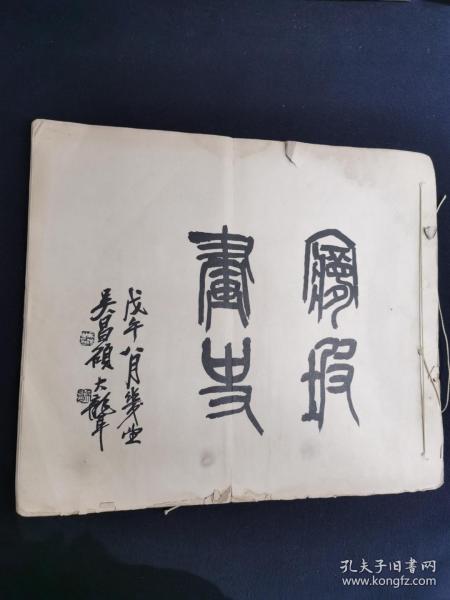 夢坡
畫史
戊午八月幾望
吳昌碩大聾
孔夫子旧书网
www.kongfz.com